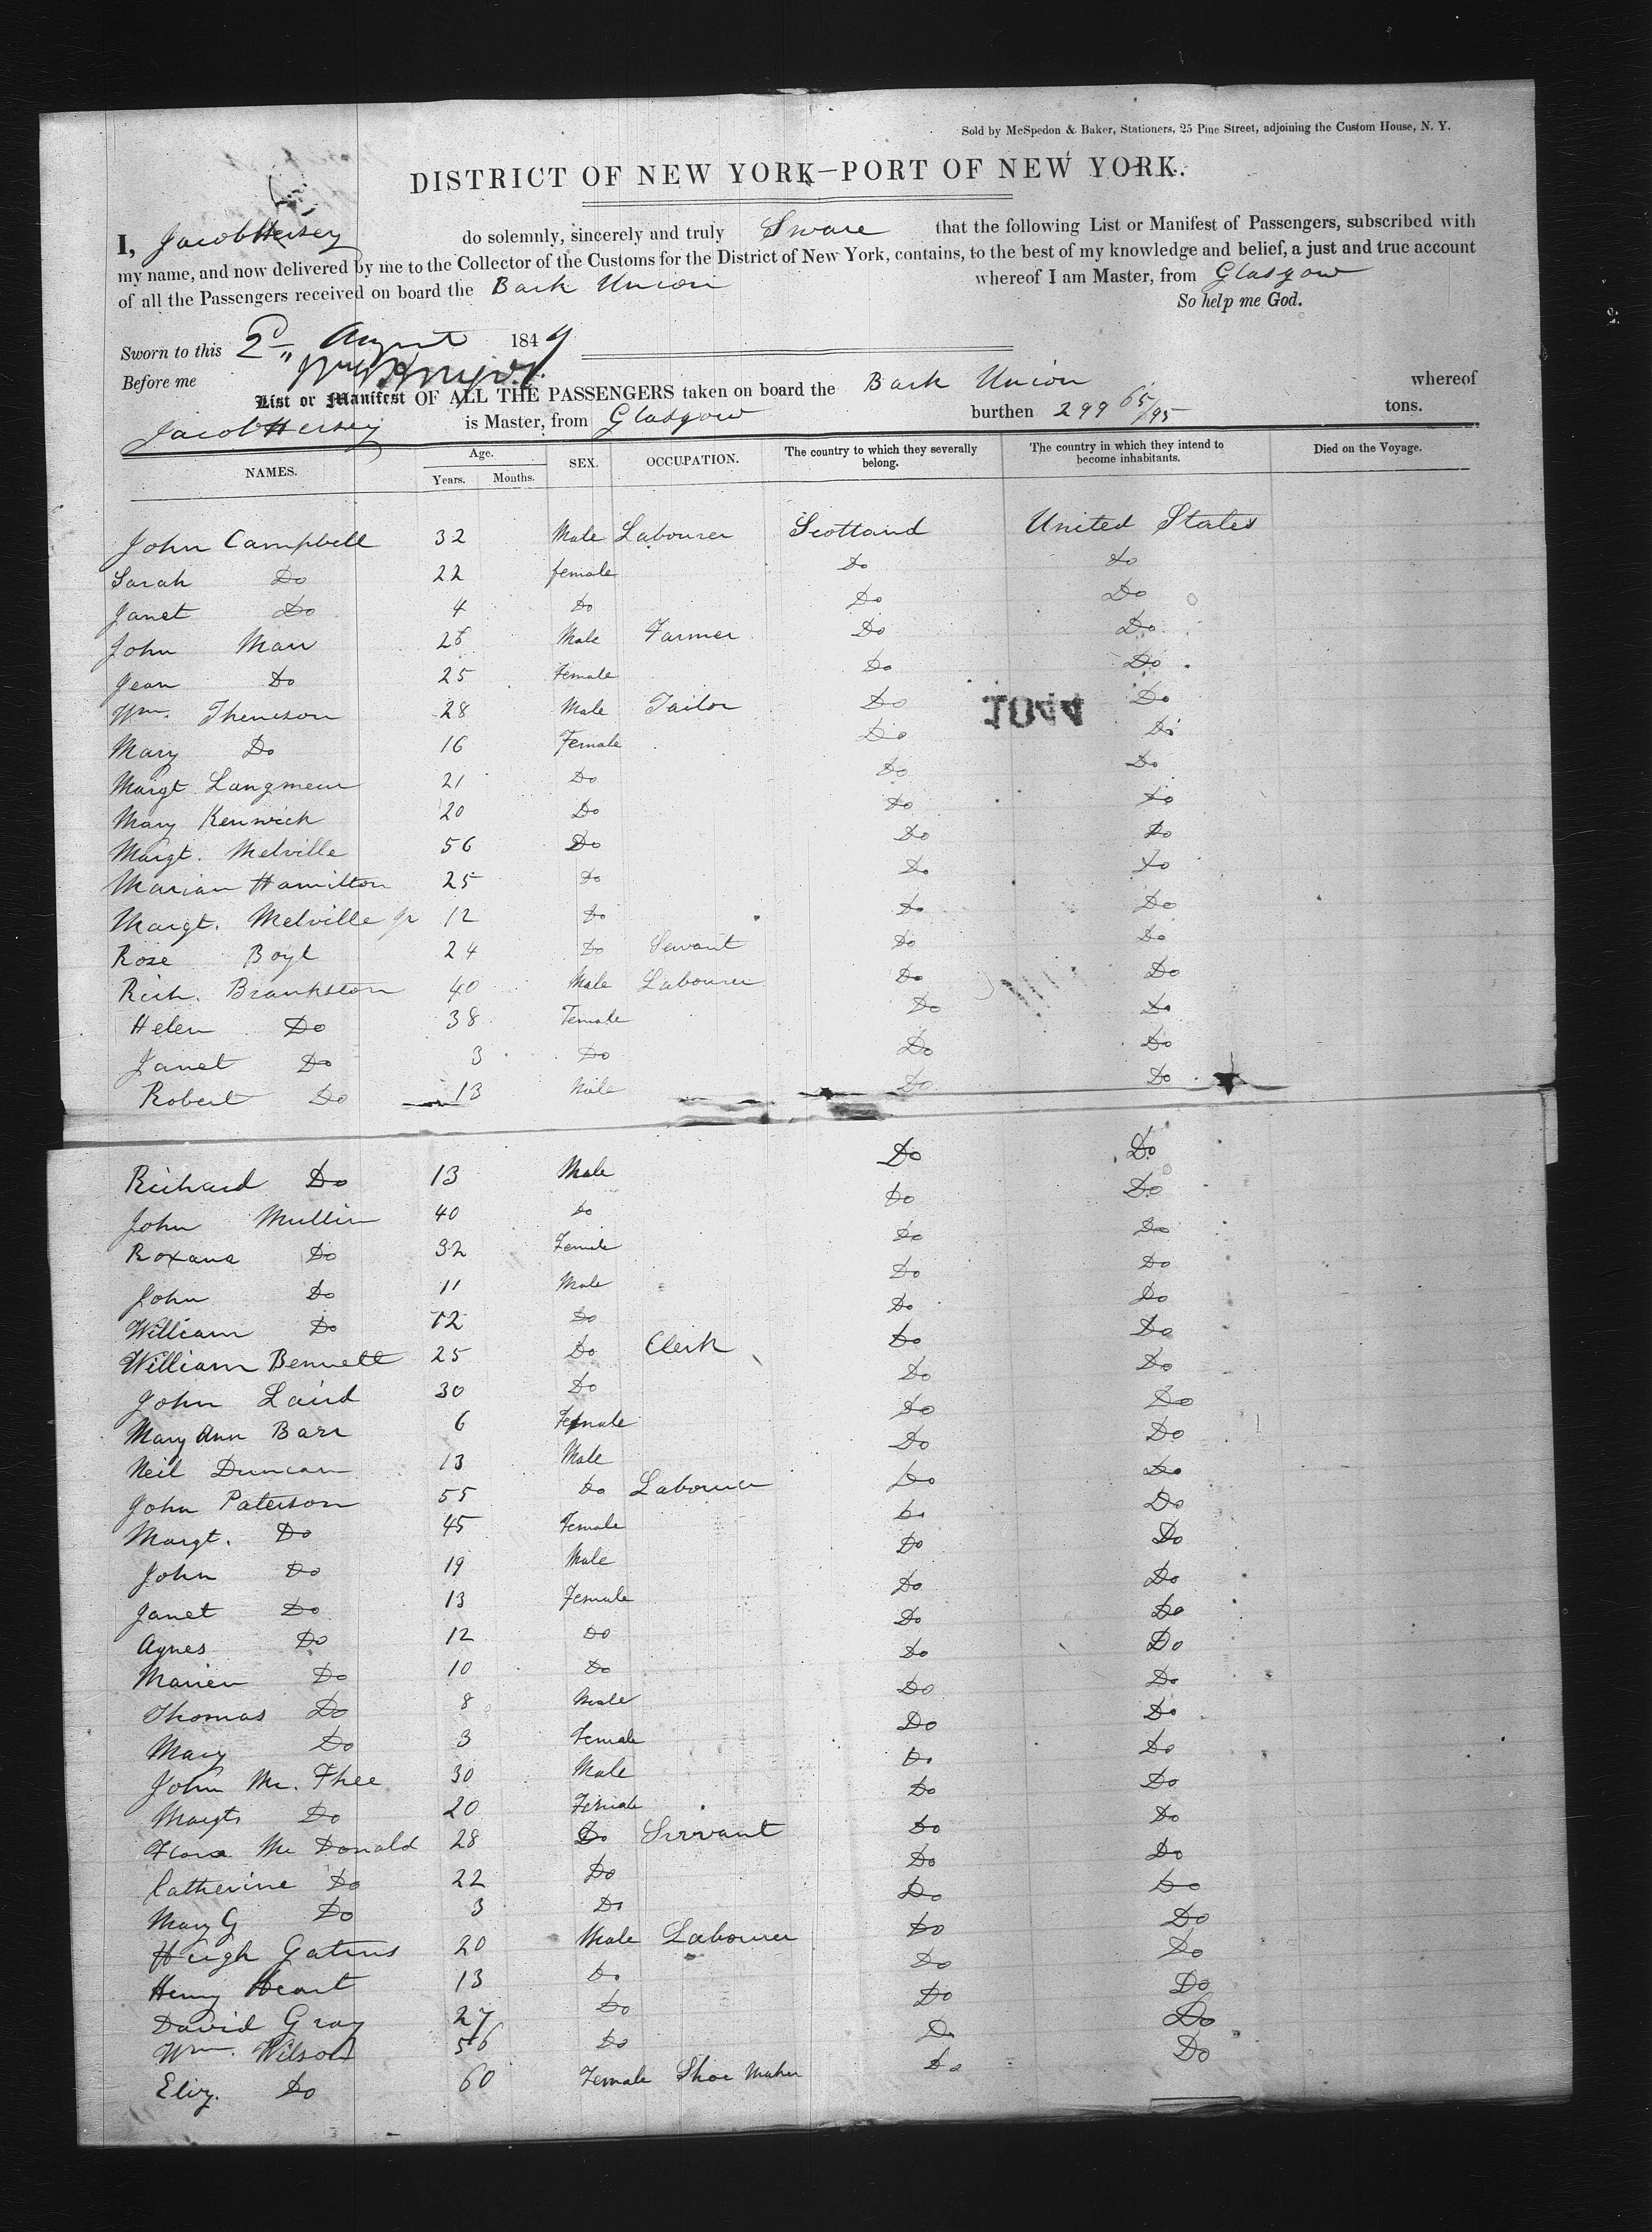 Sold by McSpedon & Baker, Stationers, 25 Pine Street, adjoining the Custom House, N. Y.
DISTRICT OF NEW YORK—PORT OF NEW YORK.
I, Jacob Hersey do solemnly, sincerely and truly Sware that the following List or Manifest of Passengers, subscribed with
my name, and now delivered by me to the Collector of the Customs for the District of New York, contains, to the best of my knowledge and belief, a just and true account
of all the Passengers received on board the Bark Union whereof I am Master, from Glasgow
So help me God.
Sworn to this 2d August 1849
Before me
List or Manifest OF ALL THE PASSENGERS taken on board the Bark Union whereof
Jacob Hersey is Master, from Glasgow burthen 299 65/95 tons.
NAMES. Age. Years. Months. SEX. OCCUPATION. The country to which they severally belong. The country in which they intend to become inhabitants. Died on the Voyage.
John Campbell 32 Male Labourer Scotland United States
Sarah Do 22 female Do Do
Janet Do 4 Do Do Do
John Marr 26 Male Farmer Do Do
Jean Do 25 Female Do Do
Wm. 28 Male Tailor Do Do
Mary Do 16 Female Do Do
Margt Langmeur 21 Do Do Do
Mary Kenwick 20 Do Do Do
Margt. Melville 56 Do Do Do
Marian Hamilton 25 Do Do Do
Margt. Melville Jr 12 Do Do Do
Rose Boyl 24 Do Servant Do Do
Rich. Brankston 40 Male Labourer Do Do
Helen Do 38 Female Do Do
Janet Do 3 Do Do Do
Robert Do 13 Male Do Do
Richard Do 13 Male Do Do
John Mullin 40 Do Do Do
Roxana Do 32 Female Do Do
John Do 11 Male Do Do
William Do 12 Do Do Do
William Bennett 25 Do Clerk Do Do
John Laird 30 Do Do Do
Mary Ann Barr 6 Female Do Do
Neil Duncan 13 Male Do Do
John Paterson 55 Do Labourer Do Do
Margt. Do 45 Female Do Do
John Do 19 Male Do Do
Janet Do 13 Female Do Do
Agnes Do 12 Do Do Do
Marien Do 10 Do Do Do
Thomas Do 8 Male Do Do
Mary Do 3 Female Do Do
John Mc. Fhee 30 Male Do Do
Margt. Do 20 Female Do Do
Flora Mc Donald 28 Do Servant Do Do
Catherine Do 22 Do Do Do
Mary G Do 3 Do Do Do
Hugh Gatins 20 Male Labourer Do Do
Henry Heart 13 Do Do Do
David Gray 27 Do Do Do
Wm. Wilson 56 Do Do Do
Eliz. Do 60 Female Shoe Maker Do Do